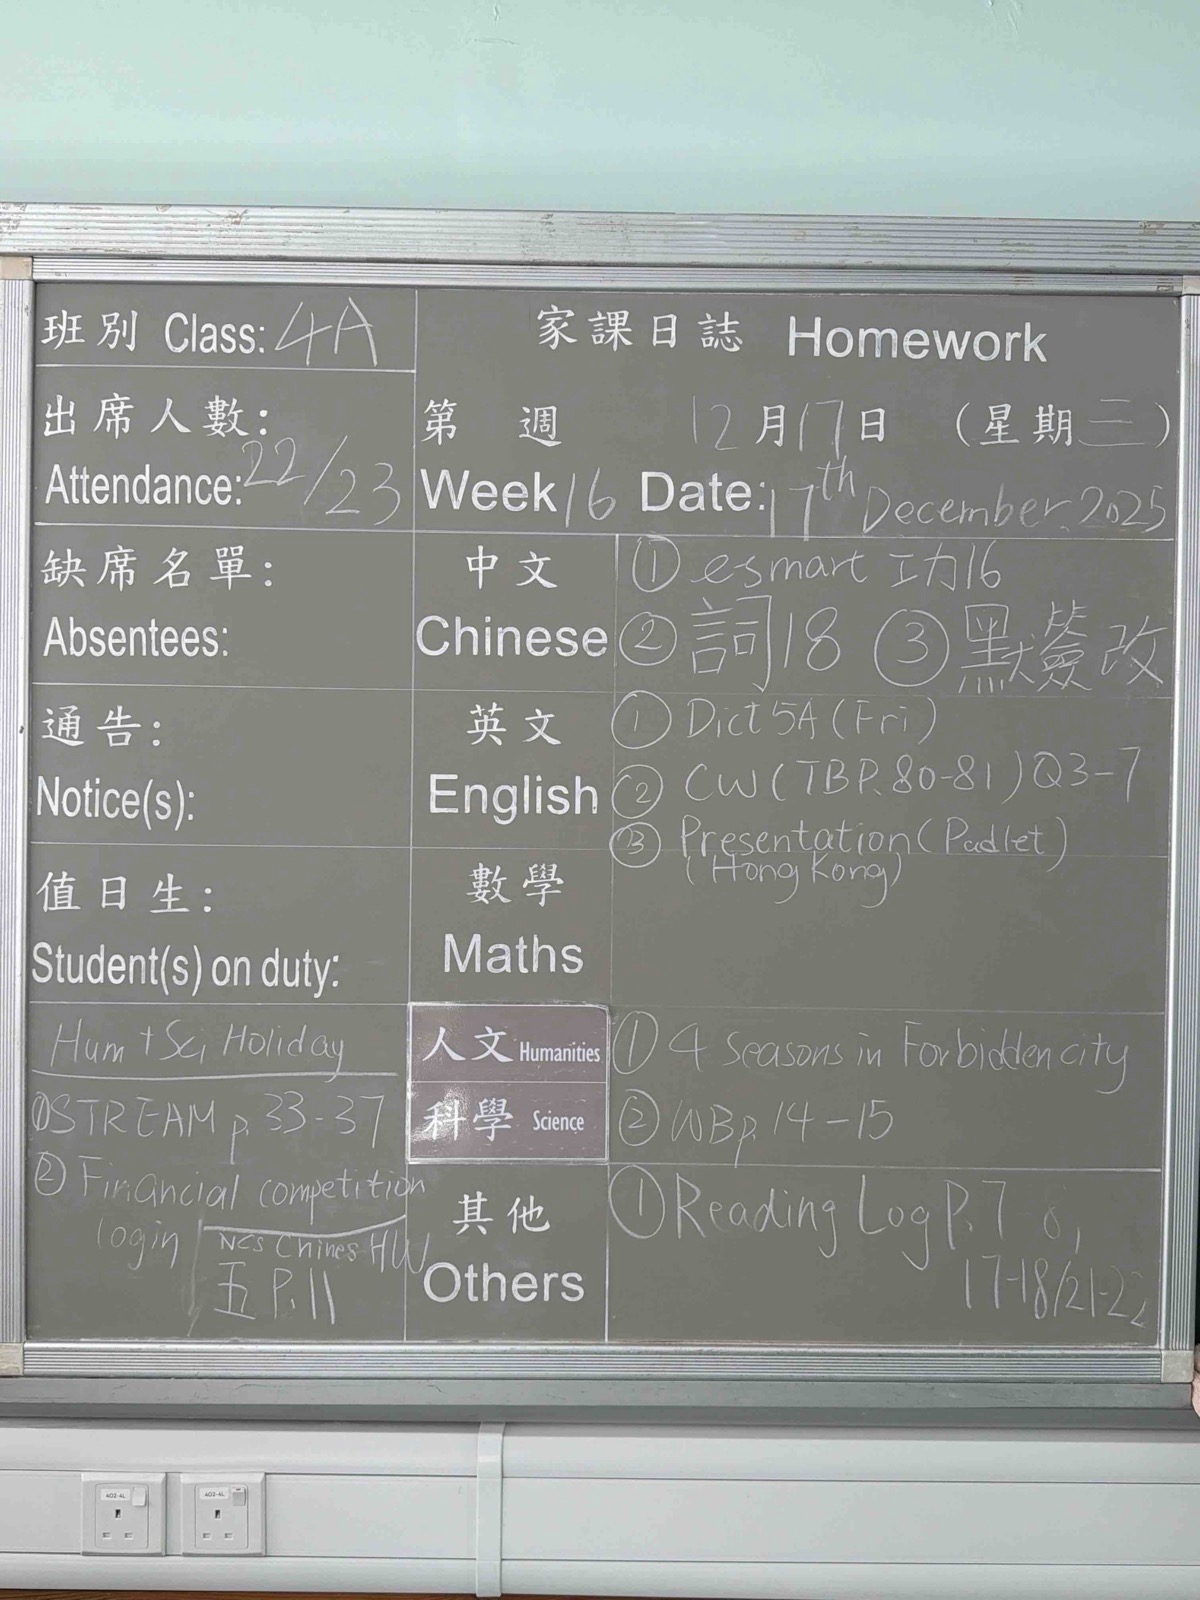 班別 Class: 4A
家課日誌 Homework
出席人數:
Attendance: 22/23
第 週 12月17日 (星期三)
Week 16 Date: 17th December 2025
缺席名單:
Absentees:
中文
Chinese
① esmart 工力16
② 詞18 ③ 默簽改
通告:
Notice(s):
英文
English
① Dict 5A (Fri)
② CW (TB P. 80-81) Q3-7
③ Presentation (Padlet)
(Hong Kong)
值日生:
Student(s) on duty:
數學
Maths
Hum + Sci Holiday
① STREAM p. 33-37
② Financial competition
login
NCS Chines HW
五 P.11
人文 Humanities
① 4 seasons in Forbidden city
科學 Science
② WB p. 14-15
其他
Others
① Reading Log P. 7
17-18/21-22
402-4L
402-4L